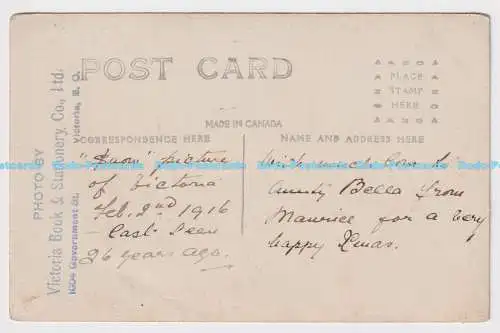 POST CARD
PLACE
STAMP
HERE
MADE IN CANADA
CORRESPONDENCE HERE
NAME AND ADDRESS HERE
PHOTO BY
Victoria Book & Stationery. Co., Ltd.
1004 Government St. Victoria, B. C.
"Snow" picture
of Victoria
Feb. 2nd 1916
- Last seen
26 years ago.
With much love to
Aunty Bella from
Maurice for a very
happy Xmas.